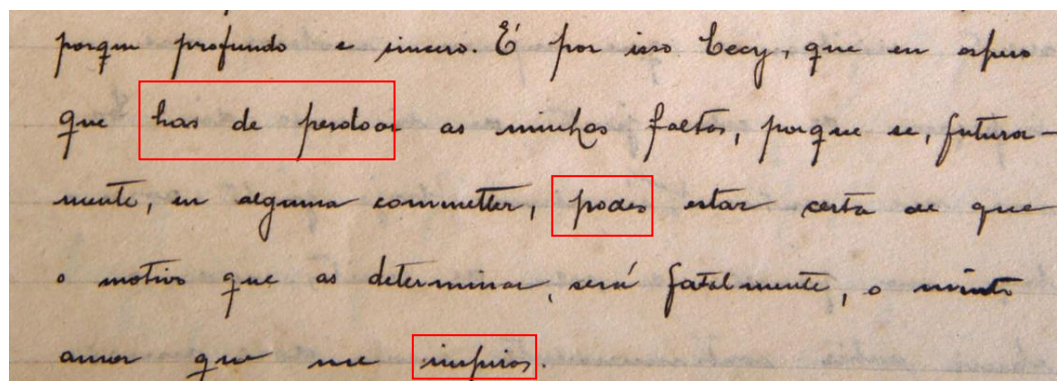 porque profundo e sincero. É por isso Cecy, que eu espero
que has de perdoar as minhas faltas, porque se, futura-
mente, eu alguma commetter, podes estar certa de que
o motivo que as determinar, será fatalmente, o muito
amor que me inspiras.